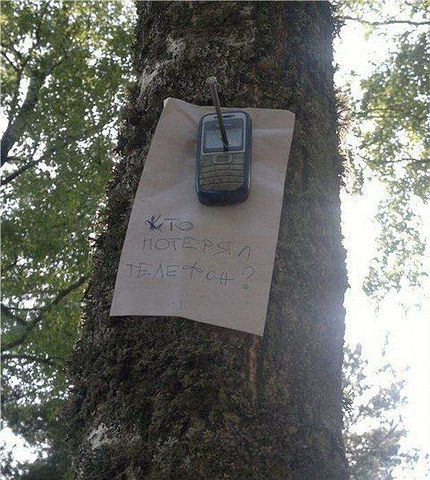 КТО
ПОТЕРЯЛ
ТЕЛЕФОН?
:)